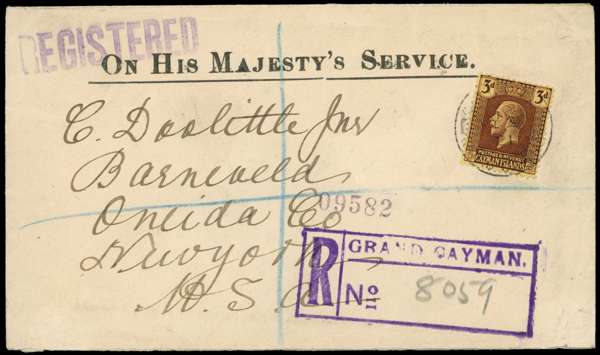 REGISTERED
ON HIS MAJESTY'S SERVICE.
3d 3d
POSTAGE & REVENUE
CAYMAN ISLANDS
C. Doolittle Jnr
Barneveld
Oneida Co
New york
U. S. a
09582
R
GRAND CAYMAN.
No 8059